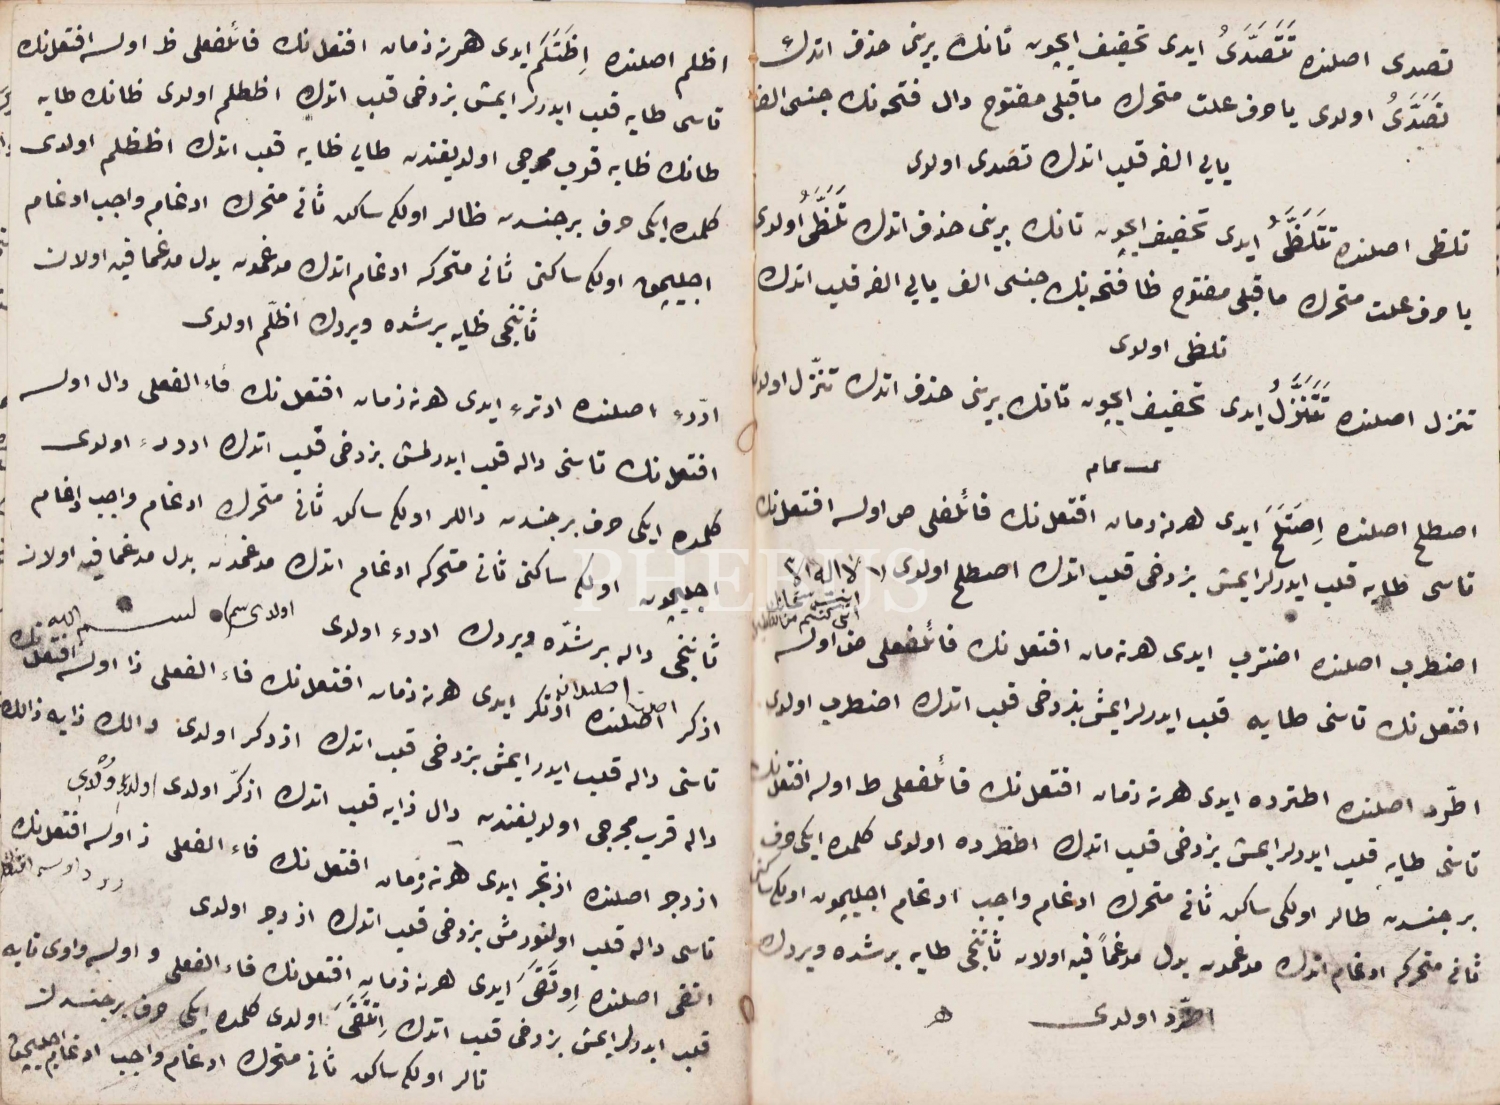 تصدى اصلنده تَتَصَدَّىُ ايدى تخفيف ايچون تانك برينى حذف اتدك
تَصَدَّىُ اولدى يا حرف علت متحرك ما قبلى مفتوح دال فتحه نك جنسى الف
يايى الفه قلب اتدك تصدى اولدى
تلظى اصلنده تَتَلَظَّىُ ايدى تخفيف ايچون تانك برينى حذف اتدك تَلَظَّىُ اولدى
يا حرف علت متحرك ما قبلى مفتوح ظا فتحه نك جنسى الف يايى الفه قلب اتدك
تلظى اولدى
تنزل اصلنده تَتَنَزَّلُ ايدى تخفيف ايچون تانك برينى حذف اتدك تنزّل اولدى
تمام
اصطلح اصلنده اِصتَلَحَ ايدى هر نه زمان افتعل نك فائلفعلى ص اولسه افتعل نك
تاسى طايه قلب ايدرلر ايمش بز دخى قلب اتدك اصطلح اولدى لا اله الا
انت سبحانك
انى كنتم من الظالمين
اضطرب اصلنده اضترب ايدى هر نه مان افتعل نك فائلفعلى ض اولسه
افتعل نك تاسنى طايه قلب ايدرلر ايمش بز دخى قلب اتدك اضطرب اولدى
اطّرد اصلنده اطترده ايدى هر نه زمان افتعل نك فائلفعلى ط اولسه افتعل نك
تاسنى طايه قلب ايدرلر ايمش بز دخى قلب اتدك اططرده اولدى كلمده ايكى حرف
بر جنسدن طالر اولكى ساكن ثانى متحرك ادغام واجب ادغام اجليچون اولكى ساكنى
ثانى متحركه ادغام اتدك مدغمدن بدل مدغماً فيه اولان ثاننجى طايه بر شده ويردك
اطّرد اولدى
اظلم اصلنده اِظتَلَمَ ايدى هر نه زمان افتعل نك فائلفعلى ظ اولسه افتعل نك
تاسى طايه قلب ايدرلر ايمش بز دخى قلب اتدك اظطلم اولدى ظانك طايه
طانك ظايه قرب مخرجى اولديغندن طايى ظايه قلب اتدك اظظلم اولدى
كلمده ايكى حرف بر جنسدن ظالر اولكى ساكن ثانى متحرك ادغام واجب ادغام
اجليچون اولكى ساكنى ثانى متحركه ادغام اتدك مدغمدن بدل مدغما فيه اولان
ثاننجى ظايه بر شده ويردك اظّلم اولدى
ادّرء اصلنده ادترء ايدى هر نه زمان افتعل نك فاء الفعلى دال اولسه
افتعل نك تاسنى داله قلب ايدرلمش بز دخى قلب اتدك اددرء اولدى
كلمده ايكى حرف بر جنسدن داللر اولكى ساكن ثانى متحرك ادغام واجب ادغام
اجليچون اولكى ساكنى ثانى متحركه ادغام اتدك مدغمدن بدل مدغما فيه اولان
ثاننجى داله بر شدّه ويردك اددرء اولدى اولدى بسم الله
اذكر اصلنده اذتكر ايدى هر نه زمان افتعل نك فاء الفعلى ذا اولسه افتعل نك
تاسنى داله قلب ايدر ايمش بز دخى قلب اتدك اذدكر اولدى دالك ذايه ذالك
داله قريب مخرجى اولديغندن دال ذايه قلب اتدك اذكّر اولدى
ازدجر اصلنده ازتجر ايدى هر نه زمان افتعل نك فاء الفعلى ز اولسه افتعل نك
تاسى داله قلب اولنور مش بز دخى قلب اتدك ازدجر اولدى
اتقى اصلنده اِوتَقَىَ ايدى هر نه زمان افتعل نك فاء الفعلى و اولسه واوى تايه
قلب ايدرلر ايمش بز دخى قلب اتدك اِتتَقَىَ اولدى كلمده ايكى حرف بر جنسدن
تالر اولكى ساكن ثانى متحرك ادغام واجب ادغام اجليچون
PHEBUS